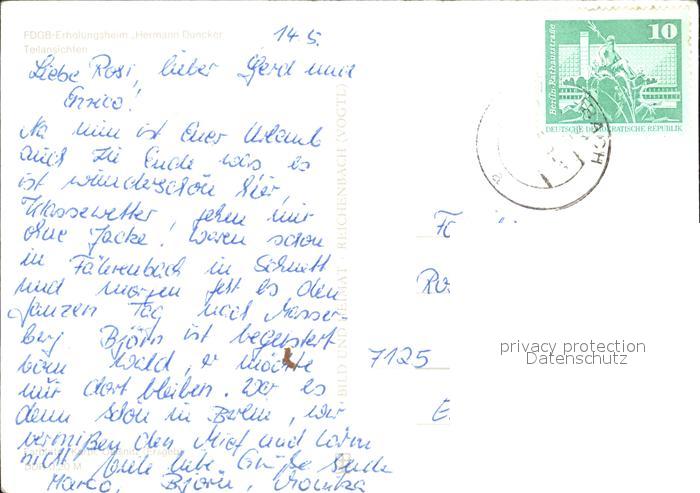 FDGB-Erholungsheim „Hermann Duncker"
Teilansichten
14 5.
Liebe Rosi, lieber Gerd und
Enrico!
Na nun ist Euer Urlaub
auch zu Ende was es
ist wunderschön hier,
Klassewetter, gehen nur
ohne Jacke! Waren schon
in Fährenbach in Schmett
und morgen geht es den
ganzen Tag nach Masser-
berg Björn ist begeistert
vom Wald, er möchte
nur dort bleiben. War es
denn schön in Berlin, wir
vermißen den Mief und Lärm
nicht viele liebe Grüße Sende
Marco, Björn, Monika
BILD UND HEIMAT · REICHENBACH (VOGTL)
10
Berlin-Rathausstraße
DEUTSCHE DEMOKRATISCHE REPUBLIK
BACH
a
Fa
Ros
7125
E
privacy protection
Datenschutz